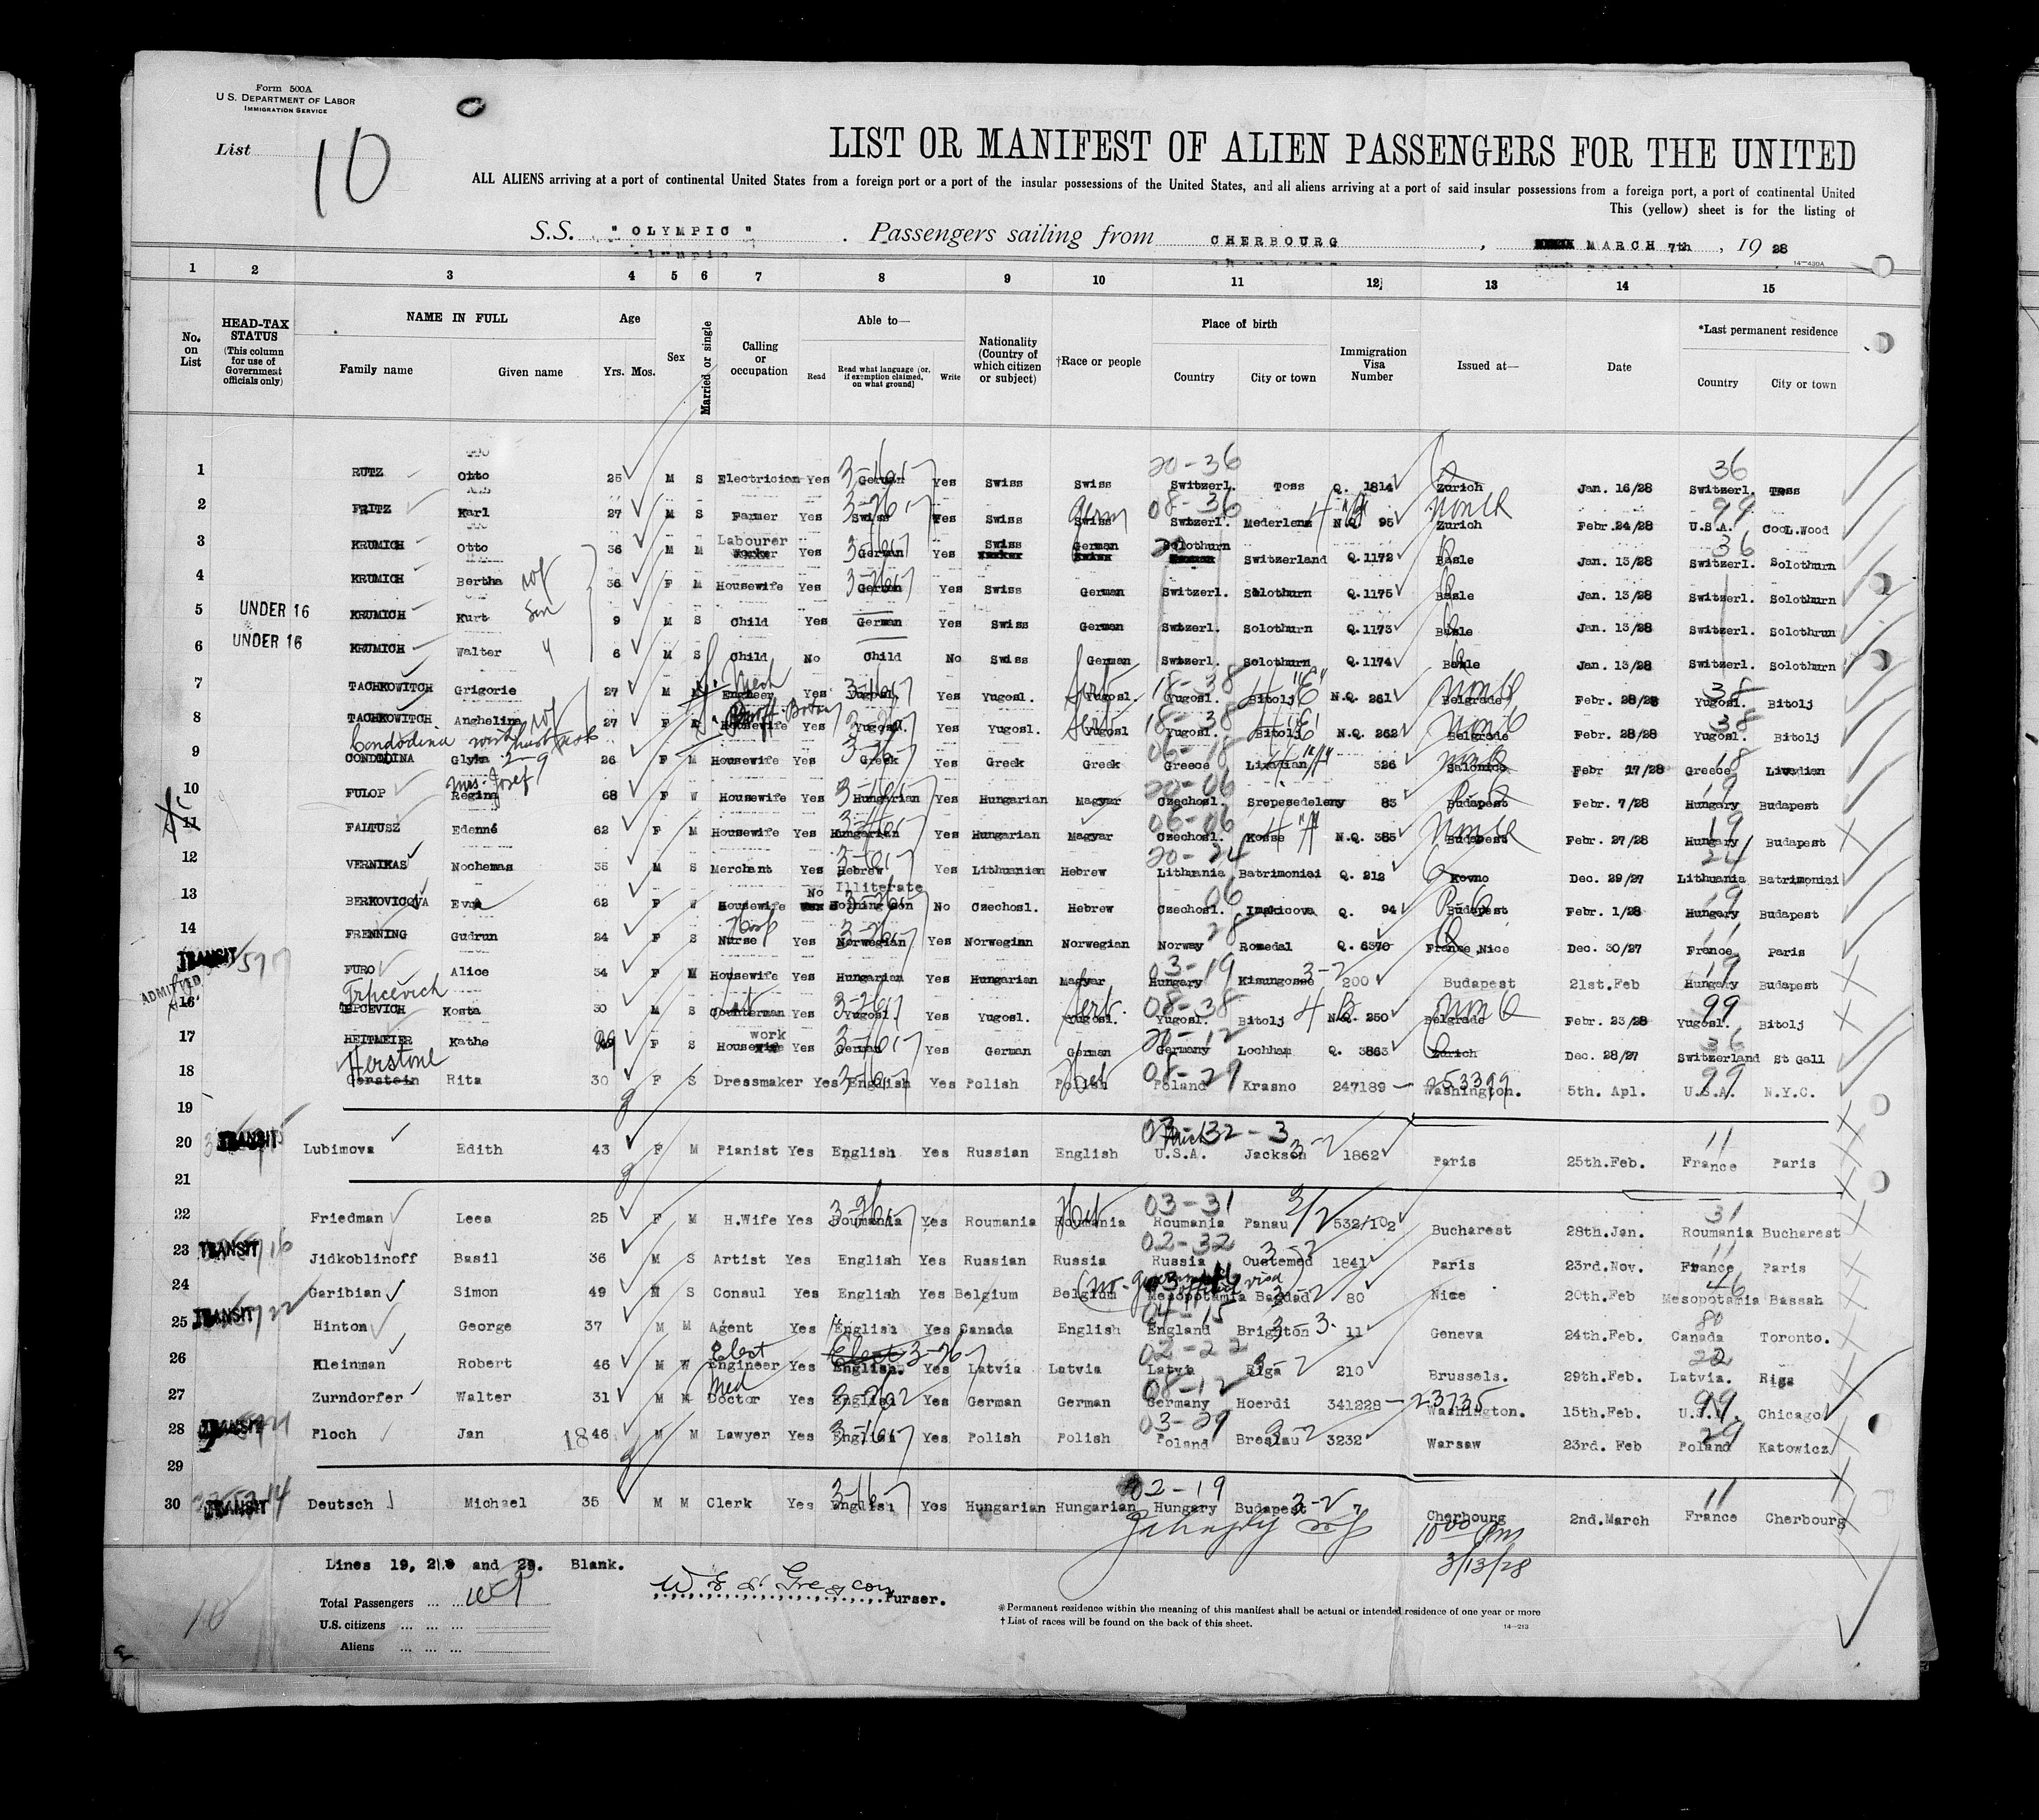 Form 500A
U.S. DEPARTMENT OF LABOR
IMMIGRATION SERVICE
List 10
LIST OR MANIFEST OF ALIEN PASSENGERS FOR THE UNITED
ALL ALIENS arriving at a port of continental United States from a foreign port or a port of the insular possessions of the United States, and all aliens arriving at a port of said insular possessions from a foreign port, a port of continental United
This (yellow) sheet is for the listing of
S.S. "OLYMPIC" . Passengers sailing from CHERBOURG , MARCH 7th , 19 28
14—430A
1 2 3 4 5 6 7 8 9 10 11 12 13 14 15
No. on List
HEAD-TAX STATUS (This column for use of Government officials only)
NAME IN FULL Family name Given name
Age Yrs. Mos.
Sex
Married or single
Calling or occupation
Able to— Read Read what language [or, if exemption claimed, on what ground] Write
Nationality (Country of which citizen or subject)
†Race or people
Place of birth Country City or town
Immigration Visa Number
Issued at—
Date
*Last permanent residence Country City or town
20-36 36
1 RUTZ Otto 25 M S Electrician Yes German Yes Swiss Swiss Switzerl. Toss Q. 1814 Zurich Jan. 16/28 Switzerl. Toss
08-36 99
2 FRITZ Karl 27 M S Farmer Yes Swiss Yes Swiss Swiss Germ Switzerl. Mederlenz N.Q. 95 Zurich Febr.24/28 U.S.A. CooL.Wood
3 KRUMICH Otto 36 M M Labourer Yes German Yes Swiss German Solothurn Switzerland Q.1172 Basle Jan. 13/28 Switzerl. Solothurn
4 KRUMICH Bertha wf 36 F M Housewife Yes German Yes Swiss German Switzerl. Solothurn Q.1175 Basle Jan. 13/28 Switzerl. Solothurn
5 UNDER 16 KRUMICH Kurt Son 9 M S Child Yes German Yes Swiss German Switzerl. Solothurn Q.1173 Basle Jan. 13/28 Switzerl. Solothrun
6 UNDER 16 KRUMICH Walter 6 M S Child No Child No Swiss German Switzerl. Solothurn Q.1174 Basle Jan. 13/28 Switzerl. Solothurn
7 TACHKOWITCH Grigorie 27 M Mech Engineer Yes Yugosl. Yes Yugosl. Yugosl. 18-38 Yugosl. Bitolj N.Q. 261 Belgrade Febr. 28/28 Yugosl. Bitolj
8 TACHKOWITCH Anghelina wf 27 F Housewife Yes Yugosl. Yes Yugosl. Yugosl 18-38 Yugosl. Bitolj N.Q. 262 Belgrade Febr. 28/28 Yugosl. Bitolj
9 CONDODINA Glyka 26 F M Housewife Yes Greek Yes Greek Greek 06-18 Greece Livadian 326 Salonica Febr 17/28 Greece Livadien
Mrs. Josef
10 FULOP Regina 68 F W Housewife Yes Hungarian Yes Hungarian Magyar 20-06 Czechosl. Srepesedeleny 83 Budapest Febr. 7/28 Hungary Budapest
11 FALTUSZ Edenné 62 F M Housewife Yes Hungarian Yes Hungarian Magyar 06-06 Czechosl. Kosse N.Q. 385 Budapest Febr. 27/28 Hungary Budapest
12 VERNIKAS Nochemas 35 M S Merchant Yes Hebrew Yes Lithuanian Hebrew 20-24 Lithuania Batrimoniai Q. 212 Kovno Dec. 29/27 Lithuania Batrimoniai
13 BERKOVICOVA Eva 62 F W Housewife No Illiterate No Czechosl. Hebrew Czechosl. Q. 94 Budapest Febr. 1/28 Hungary Budapest
14 FRENNING Gudrun 24 F S Nurse Yes Norwegian Yes Norwegian Norwegian 28 Norway Romedal Q. 6370 France,Nice Dec. 30/27 France Paris
TRANSIT FURO Alice 34 F M Housewife Yes Hungarian Yes Hungarian Magyar 03-19 Hungary Kisungosse 3-2 200 Budapest 21st.Feb Hungary Budapest
ADMITTED
Trpcevich
16 Kosta 30 M S Counterman Yes Yugosl. Yes Yugosl. Yugosl. 08-38 Yugosl. Bitolj N.Q. 250 Belgrade Febr. 23/28 99 Yugosl. Bitolj
17 HEITMEIER Kathe 29 F S Housework Yes German Yes German German 20-12 Germany Lochham Q. 3863 Zurich Dec. 28/27 36 Switzerland St Gall
Herstone
18 Gerstein Rita 30 F S Dressmaker Yes English Yes Polish Polish Heb 08-29 Poland Krasno 247189 — 253399 Washington. 5th. Apl. 99 U.S.A. N.Y.C.
19
20 TRANSIT Lubimova Edith 43 F M Pianist Yes English Yes Russian English Mich U.S.A. Jackson 3-2 1862 Paris 25th.Feb. 11 France Paris
21
22 Friedman Leea 25 F M H.Wife Yes Roumania Yes Roumania Roumania Heb 03-31 Roumania Panau 532/102 Bucharest 28th.Jan. 31 Roumania Bucharest
23 TRANSIT Jidkoblinoff Basil 36 M S Artist Yes English Yes Russian Russia 02-32 Russia Oustemed 3-2 1841 Paris 23rd.Nov. 11 France Paris
24 Garibian Simon 49 M S Consul Yes English Yes Belgium Belgium Mesopotamia Bagdad 80 Nice 20th.Feb Mesopotamia Bassah
25 TRANSIT Hinton George 37 M M Agent Yes English Yes Canada English 04-15 England Brighton 11 Geneva 24th.Feb. 80 Canada Toronto.
26 Kleinman Robert 46 M W Elect Engineer Yes English. Yes Latvia Latvia 02-22 Latvia Riga 210 Brussels. 29th.Feb. 22 Latvia. Riga
27 Zurndorfer Walter 31 M M Med Doctor Yes English Yes German German 08-12 Germany Hoerdi 341228 — 23735 Washington. 15th.Feb. 99 U.S.A. Chicago
28 TRANSIT Ploch Jan 46 M M Lawyer Yes English Yes Polish Polish 03-29 Poland Breslau 3232 Warsaw 23rd. Feb 29 Poland Katowicz
29
30 TRANSIT Deutsch Michael 35 M M Clerk Yes English Yes Hungarian Hungarian 02-19 Hungary Budapest 3-2 7 Cherbourg 2nd.March 11 France Cherbourg
10 00 Pm
3/13/28
Lines 19, 21 and 29. Blank.
Total Passengers
U.S. citizens
Aliens
Purser.
*Permanent residence within the meaning of this manifest shall be actual or intended residence of one year or more
†List of races will be found on the back of this sheet.
14—213